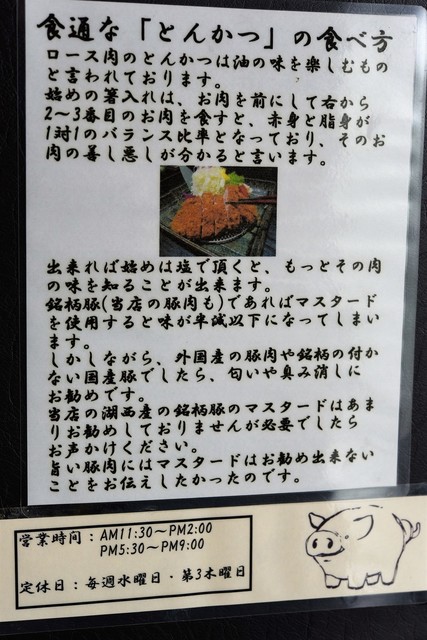 食通な「とんかつ」の食べ方
ロース肉のとんかつは油の味を楽しむもの
と言われております。
始めの箸入れは、お肉を前にして右から
2~3番目のお肉を食すと、赤身と脂身が
1対1のバランス比率となっており、そのお
肉の善し悪しが分かると言います。
出来れば始めは塩で頂くと、もっとその肉
の味を知ることが出来ます。
銘柄豚(当店の豚肉も)であればマスタード
を使用すると味が半減以下になってしまい
ます。
しかしながら、外国産の豚肉や銘柄の付か
ない国産豚でしたら、匂いや臭み消しに
お勧めです。
当店の湖西産の銘柄豚のマスタードはあま
りお勧めしておりませんが必要でしたら
お声かけください。
旨い豚肉にはマスタードはお勧め出来ない
ことをお伝えしたかったのです。
営業時間:AM11:30~PM2:00
PM5:30~PM9:00
定休日:毎週水曜日・第3木曜日